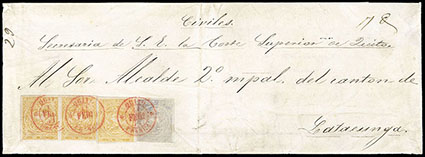 Civiles.
29
Secretaria de S. E. la Corte Superior de Quito.
Al Sor Alcalde 2º mpal. del canton de
Latacunga.